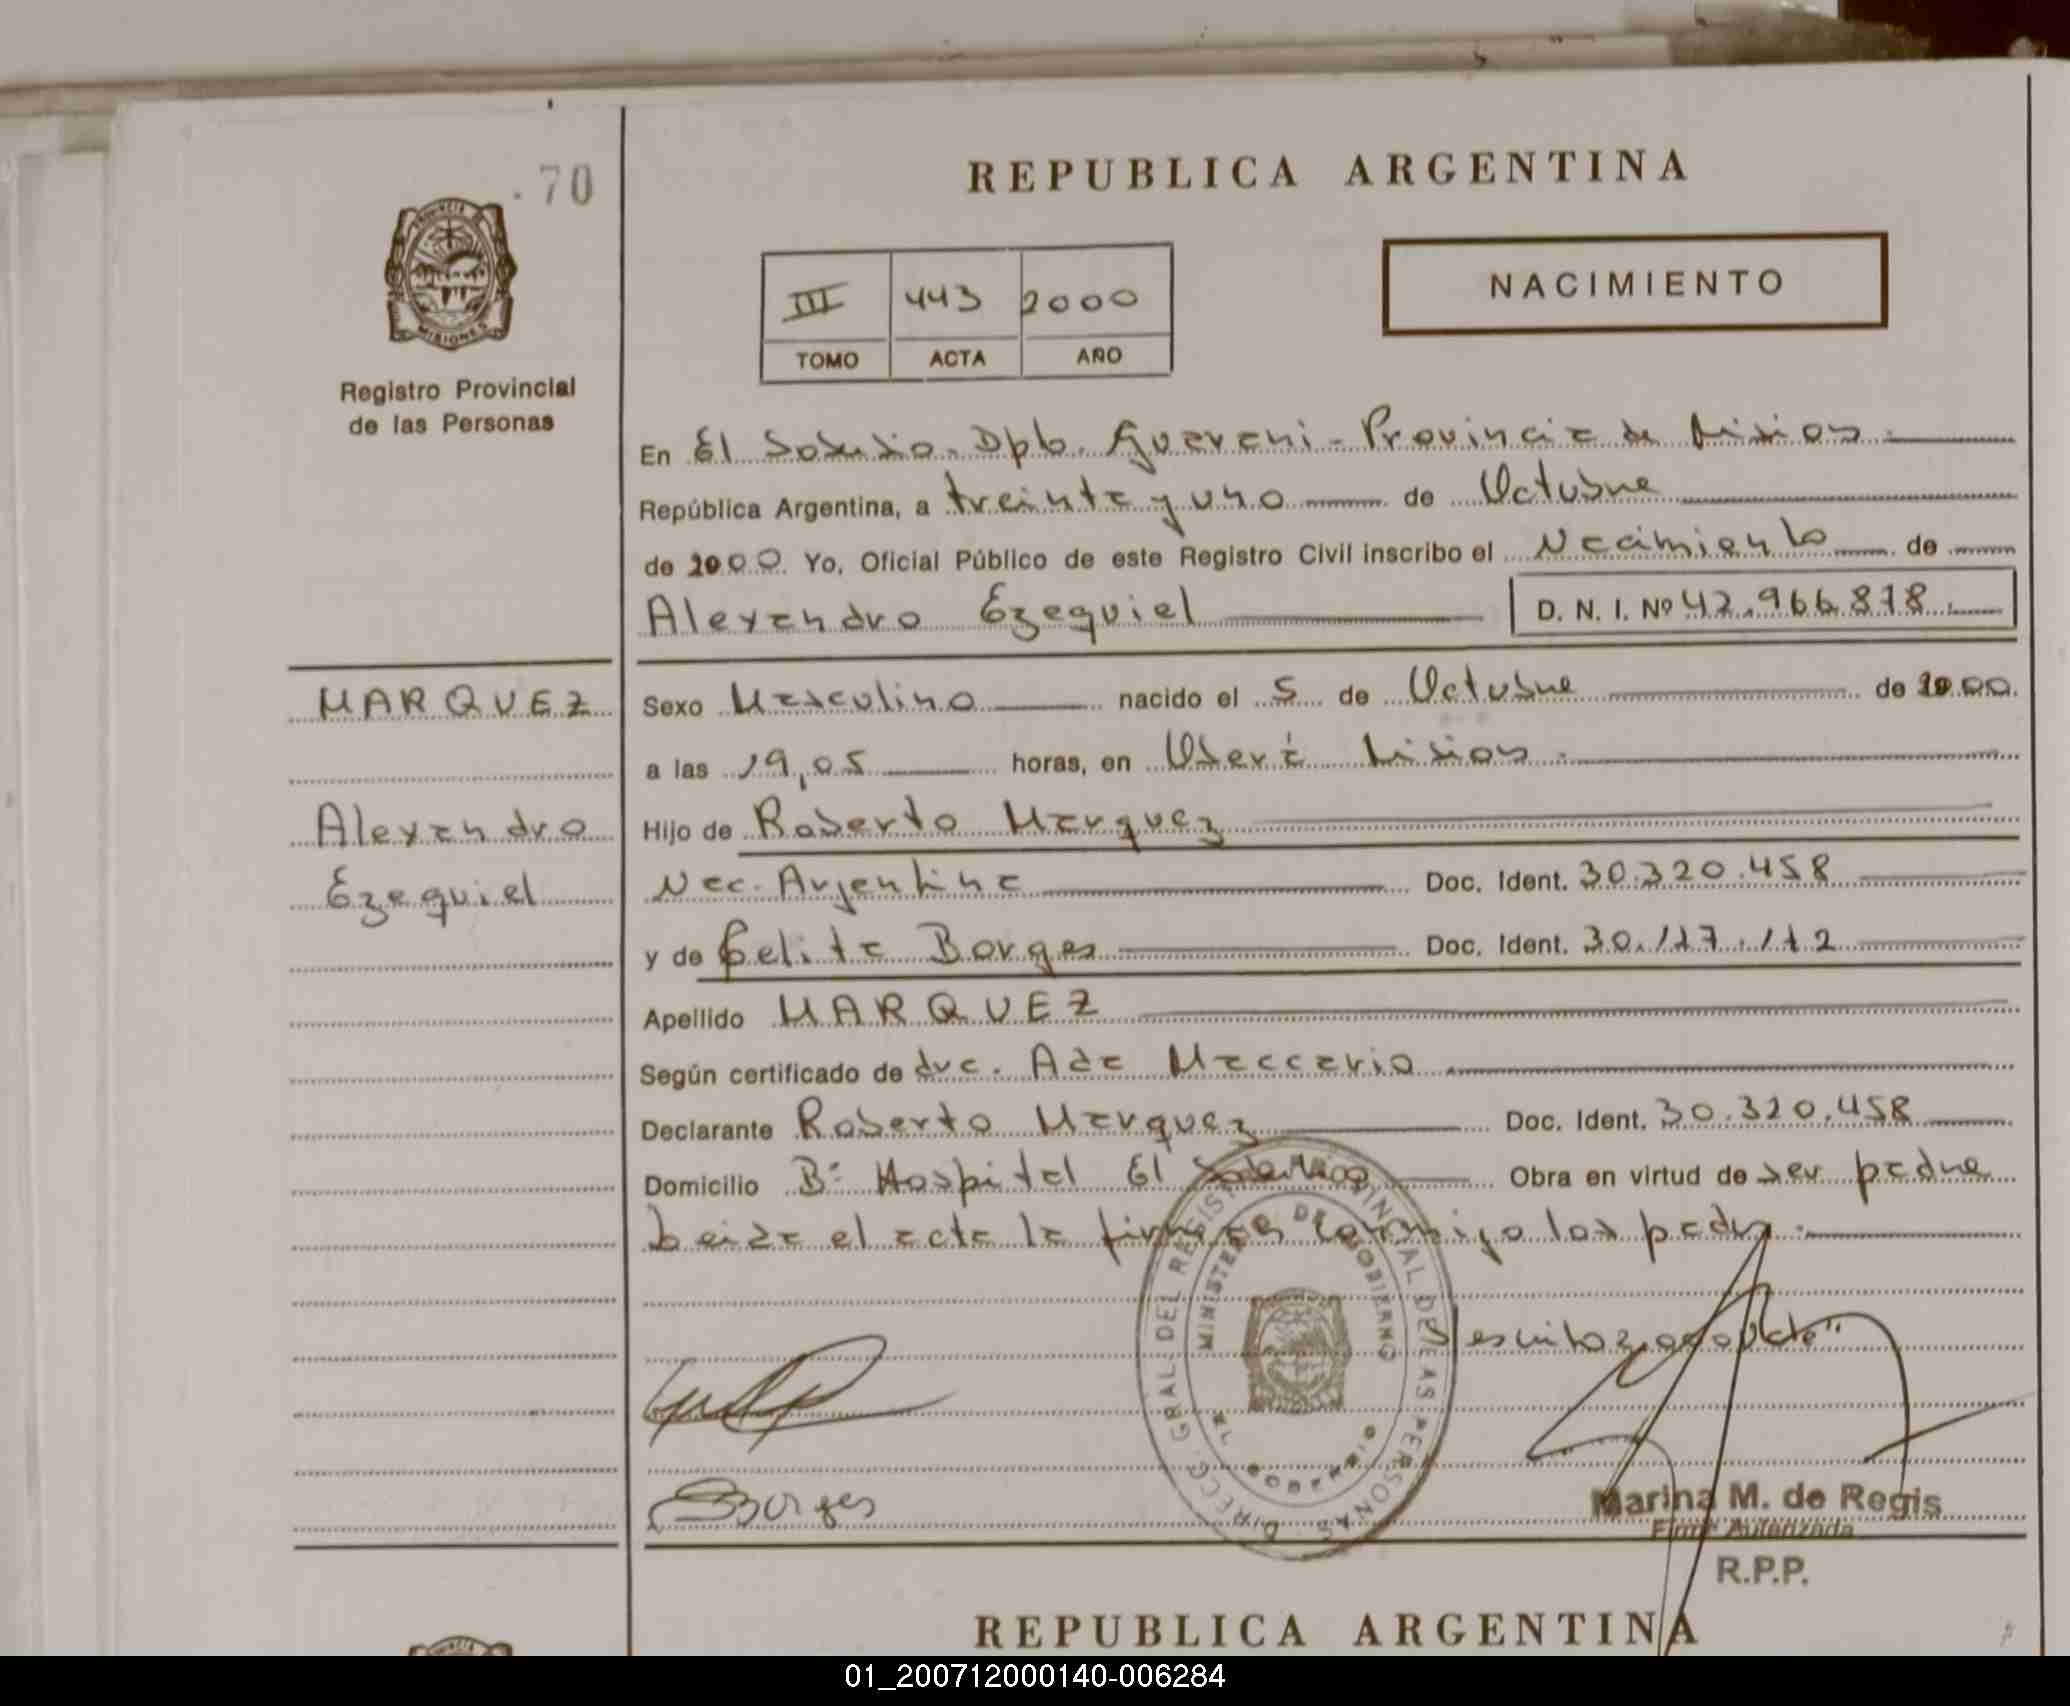 70
REPUBLICA ARGENTINA
PROVINCIA DE
MISIONES
Registro Provincial
de las Personas
III 443 2000
TOMO ACTA AÑO
NACIMIENTO
En El Soberbio - Dpto. Guarani - Provincia de Misiones
República Argentina, a treinta y uno de Octubre
de 2000. Yo, Oficial Público de este Registro Civil inscribo el Nacimiento de
Alexandro Ezequiel D. N. I. Nº 42.966.878
MARQUEZ
Alexandro
Ezequiel
Sexo Masculino nacido el 5 de Octubre de 2000.
a las 19,05 horas, en Oberá Misiones
Hijo de Roberto Marquez
Nac. Argentina Doc. Ident. 30.320.458
y de Celita Borges Doc. Ident. 30.117.112
Apellido MARQUEZ
Según certificado de dra. Ada Maccario
Declarante Roberto Marquez Doc. Ident. 30.320.458
Domicilio Bº Hospital El Soberbio Obra en virtud de ser padre
Leida el acta la firman conmigo los padres
DIRECC. GRAL. DEL REGISTRO PROVINCIAL DE LAS PERSONAS
MINISTERIO DE GOBIERNO
EL SOBERBIO
Borges
Marina M. de Regis
Firma Autorizada
R.P.P.
REPUBLICA ARGENTINA
01_200712000140-006284